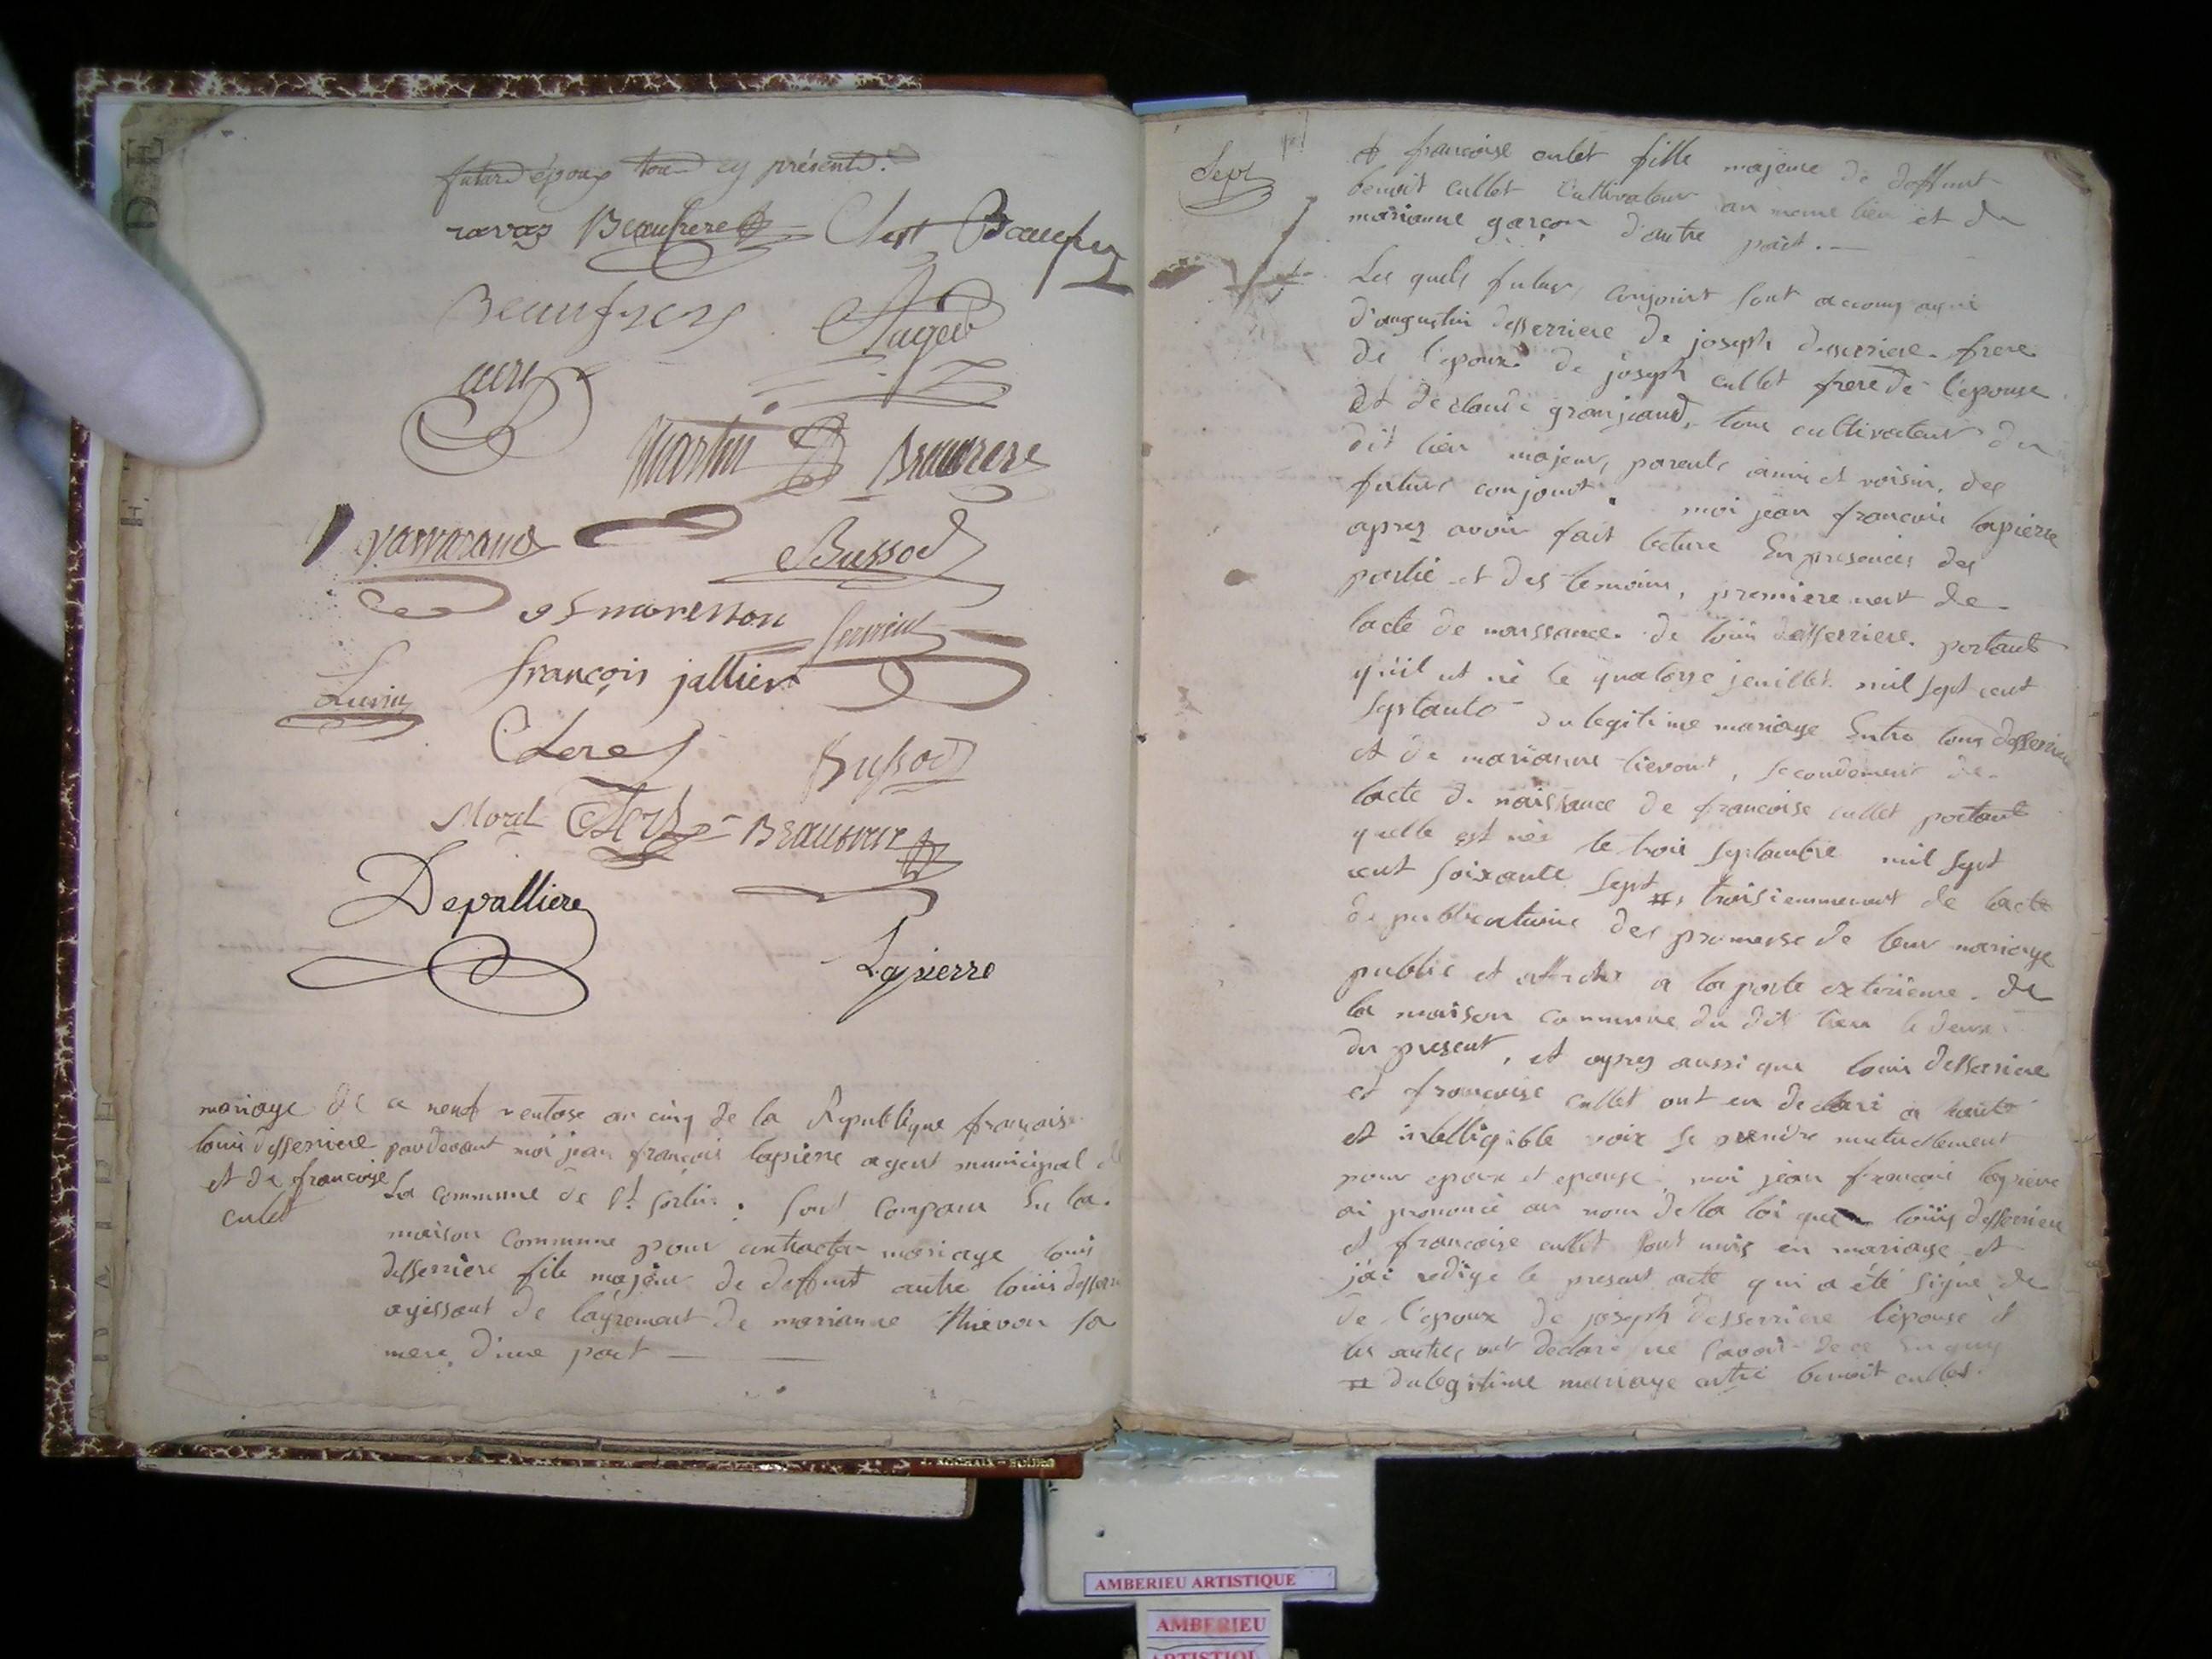 futurs époux tous cy présents.
ravas Beaufrere Clert Beaufre
Beaufrere
Martin Beaufrere
Bussod
françois jallier
Clere Bussod
Morel Beaufrere
Depalliere
Lapierre
mariage de
louis desserriere
et de francoise
culet
ce neuf ventose an cinq de la Republique francaise
pardevant moi jean françois lapierre agent municipal de
La commune de St Sorlin. sont comparu En la
maison commune pour contracter mariage louis
desserriere fils majeur de deffunt autre louis desserr
agissant de lagrement de marianne thievon sa
mere, d'une part —
Sept
et francoise culet fille majeure de deffunt
benoit cullet cultivateur au meme lieu et de
marianne garçon d'autre part. —
Les quels futurs conjoint sont accompagné
d'augustin desserriere de joseph desserriere frere
de l'epoux de joseph cullet frere de l'epouse
et de claude granjeand, tous cultivateur du
dit lieu majeurs, parents amis et voisins, des
futurs conjoint. moi jean francois lapierre
apres avoir fait lecture En presences des
partie et des temoins, premierement de
lacte de naissance de louis desserriere portant
qu'il ut né le quatorze jeuillet mil sept cent
septante du legitime mariage Entre louis desserriere
et de marianne tievont, secondement de
lacte de naissance de francoise cullet portant
quelle est née le trois septambre mil sept
cent soixante sept #, troisiemmement de lacte
de publications des promesse de leur mariage
publié et affiché a la porte exterieure de
la maison commune du dit lieu le deux
du present, et apres aussi que louis desserriere
et francoise cullet ont eu declaré a haute
et intelligible voix se prendre mutuellement
pour epoux et epouse. moi jean francois lapierre
ai prononcé au nom de la loi que louis desserriere
et francoise cullet sont unis en mariage et
j'ai redigé le present acte qui a été signé de
de l'epoux de joseph desserriere l'epouse et
les autres ont declaré ne savoir de ce Enquis
# du legitime mariage entre benoit cullet
AMBERIEU ARTISTIQUE
AMBERIEU
ARTISTIQUE